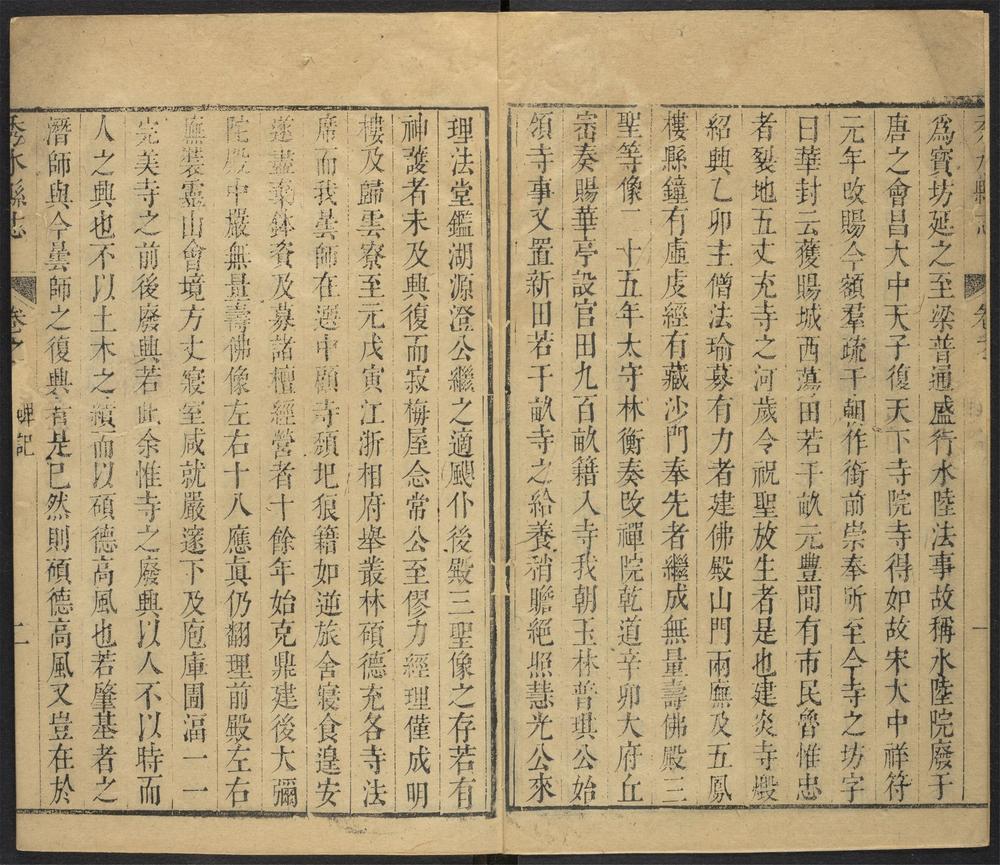 秀水縣志
卷之
一
為寶坊延之至梁普通盛行水陸法事故稱水陸院廢于
唐之會昌大中天子復天下寺院寺得如故宋大中祥符
元年改賜今額羣疏干朝作銜前崇奉所至今寺之坊字
曰華封云獲賜城西蕩田若干畝元豐間有市民魯惟忠
者裂地五丈充寺之河歲令祝聖放生者是也建炎寺燬
紹興乙卯主僧法瑜募有力者建佛殿山門兩廡及五鳳
樓縣鐘有虛虔經有藏沙門奉先者繼成無量壽佛殿三
聖等像二十五年太守林衡奏改禪院乾道辛卯大府丘
密奏賜華亭設官田九百畝籍入寺我朝玉林普琪公始
領寺事又置新田若干畝寺之給養稍贍絕照慧光公來
理法堂鑑湖源澄公繼之適颶仆後殿三聖像之存若有
神護者未及興復而寂梅屋念常公至僇力經理僅成明
樓及歸雲寮至元戊寅江浙相府舉叢林碩德充各寺法
席而我曇師在選中顧寺頹圯狼籍如逆旅舍寢食遑安
遂盡橐鉢資及募諸檀經營者十餘年始克鼎建後大彌
陀殿中嚴無量壽佛像左右十八應真仍翻理前殿左右
廡裝靈山會境方丈寢室咸就嚴邃下及庖庫圊湢一一
完美寺之前後廢興若此余惟寺之廢興以人不以時而
人之興也不以土木之績而以碩德高風也若肇基者之
潛師與今曇師之復興者是已然則碩德高風又豈在於
秀水縣志
卷之
碑記
二